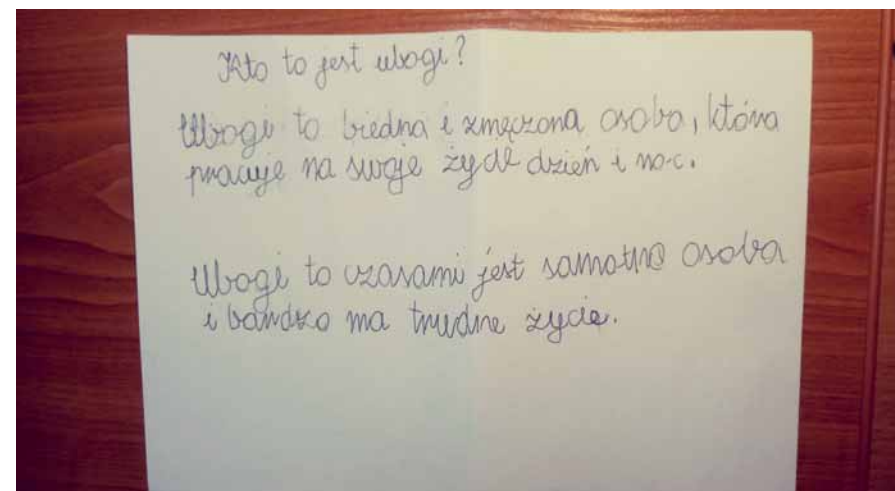 Kto to jest ubogi?
Ubogi to biedna i zmęczona osoba, która
pracuje na swoje życie dzień i noc.
Ubogi to czasami jest samotna osoba
i bardzo ma trudne życie.